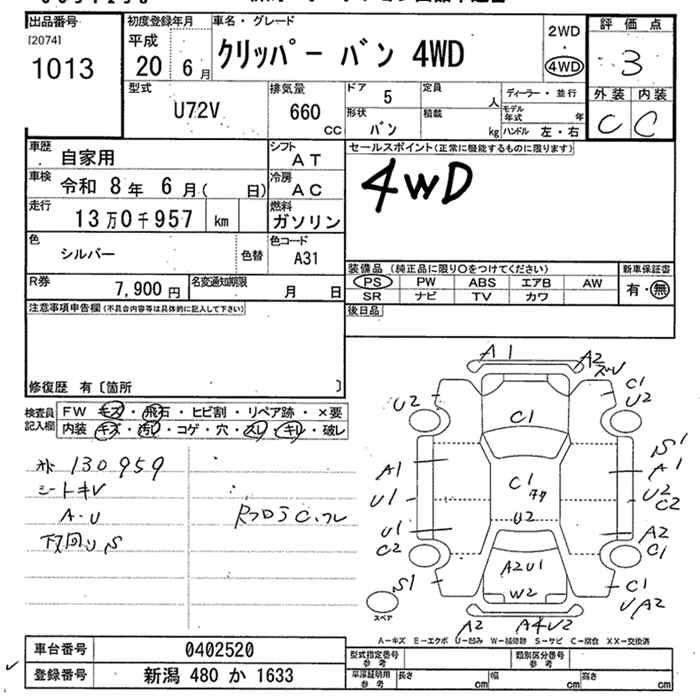 出品番号
[2074]
1013
初度登録年月
平成
20 年 6 月
車名・グレード
クリッパー バン 4WD
2WD
・
4WD
評価点
3
外装 内装
C C
型式
U72V
排気量
660
cc
ドア 5
形状
バン
定員
人
積載
kg
ディーラー・並行
モデル年式 年
ハンドル 左・右
車歴
自家用
シフト
AT
車検 令和 8年 6月( 日)
冷房
AC
走行 13万0千957 km
燃料
ガソリン
色
シルバー
色替
色コード
A31
R券
7,900 円
名変通知期限
月 日
セールスポイント(正常に機能するものに限ります)
4WD
装備品 (純正品に限り〇をつけてください)
PS PW ABS エアB AW
SR ナビ TV カワ
新車保証書
有・無
後日品
注意事項申告欄(不具合内容等は具体的に記入して下さい)
修復歴 有〔箇所 〕
検査員記入欄
FW キズ・飛石・ヒビ割・リペア跡・×要
内装 キズ・汚レ・コゲ・穴・スレ・キレ・破レ
130959
シートキV
A・U
下回リS
A1
A2
C1
U2
U2
C1
S1
A1
A1
C1
U2
C2
U1
U2
U1
C2
A2
C1
A2U1
S1
W2
C1
UA2
A2
A4U2
スペア
A－キズ E－エクボ U－凹み W－補修跡 S－サビ C－腐食 XX－交換済
車台番号 0402520
登録番号 新潟 480 か 1633
型式指定番号
参考
類別区分番号
参考
車庫証明用
参考
長さ cm
幅 cm
高さ cm